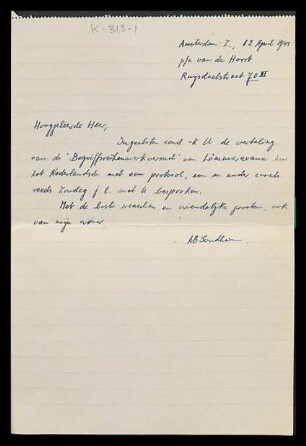 K-313-1
Amsterdam Z., 12 April 1941
p/a van der Horst
Ruijsdaelstraat 70 III
Hooggeleerde Heer,
Ingesloten zend ik U de vertaling
van de "Begriffsreihenmerkversuch" van
het Nederlandsch met een protocol, een en ander zooals
reeds Zondag j.l. met U besproken.
Met de beste wenschen en vriendelijke groeten, ook
van mijn vrouw,